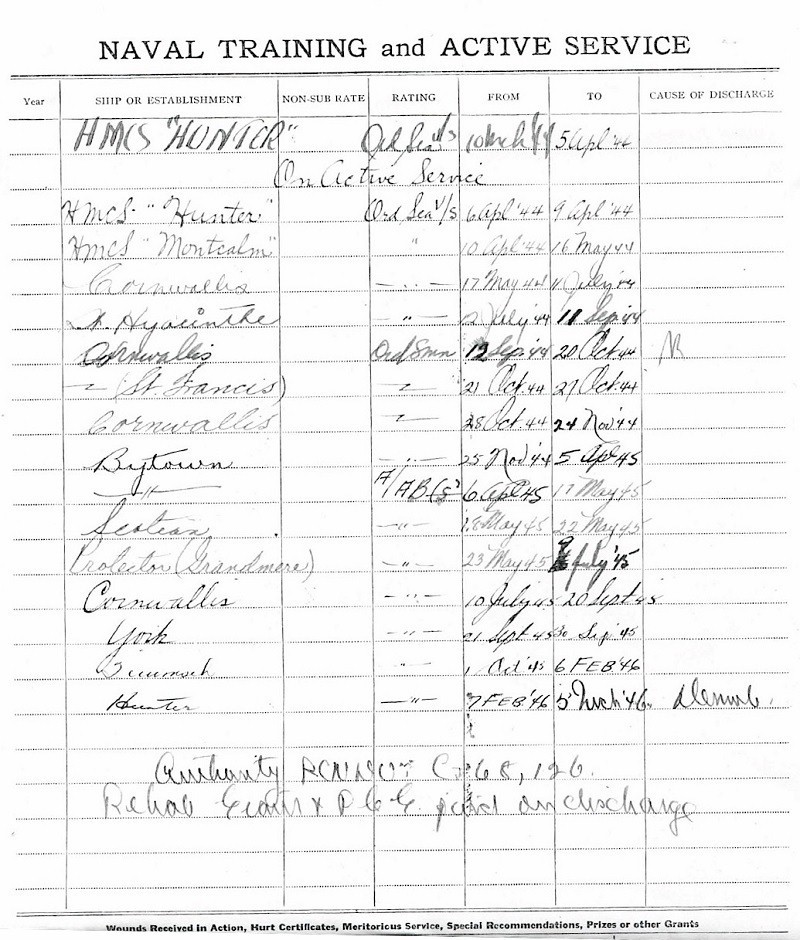 NAVAL TRAINING and ACTIVE SERVICE
Year SHIP OR ESTABLISHMENT NON-SUB RATE RATING FROM TO CAUSE OF DISCHARGE
HMCS "HUNTER" Ord Sea V/S 10 Mch 44 5 Apl '44
On Active Service
HMCS "Hunter" Ord Sea V/S 6 Apl '44 9 Apl '44
HMCS "Montcalm" " 10 Apl '44 16 May 44
Cornwallis —"— 17 May 44 July '44
St. Hyacinthe —"— 2 July '44 11 Sep '44
Cornwallis Ord Smn 12 Sep '44 20 Oct 44
—"— (St. Francis) —"— 21 Oct 44 27 Oct 44
Cornwallis —"— 28 Oct 44 24 Nov '44
Bytown —"— 25 Nov '44 5 Apl '45
—"— A/AB (S) 6 Apl 45 17 May 45
Scotian —"— 18 May 45 22 May 45
Protector (Grandmere) —"— 23 May 45 9 July '45
Cornwallis —"— 10 July 45 20 Sept 45
York —"— 21 Sept 45 30 Sep '45
Tecumseh —"— 1 Oct '45 6 FEB '46
Hunter —"— 7 FEB '46 5 Mch '46. Demob.
Authority 68, 126.
Rehab Grant & paid on discharge
Wounds Received in Action, Hurt Certificates, Meritorious Service, Special Recommendations, Prizes or other Grants